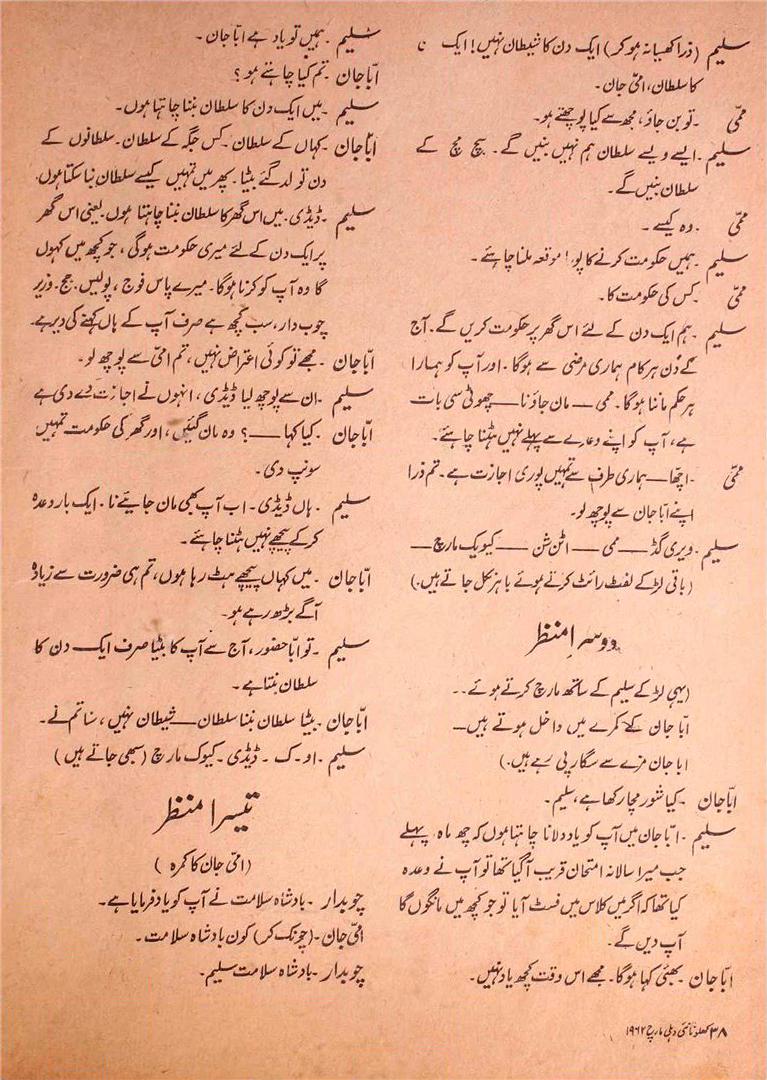 سلیم (ذرا کھسیانہ ہو کر) ایک دن کا شیطان نہیں! ایک
کا سلطان، امّی جان۔
ممّی ۔تو بن جاؤ، مجھ سے کیا پوچھتے ہو۔
سلیم ۔ایسے ویسے سلطان ہم نہیں بنیں گے۔ سچ مچ کے
سلطان بنیں گے۔
ممّی ۔وہ کیسے۔
سلیم ۔ہمیں حکومت کرنے کا پورا موقعہ ملنا چاہئے۔
ممّی ۔کس کی حکومت کا۔
سلیم ۔ہم ایک دن کے لئے اس گھر پر حکومت کریں گے۔ آج
کے دن ہر کام ہماری مرضی سے ہوگا۔ اور آپ کو ہمارا
ہر حکم ماننا ہوگا۔ ممی — مان جاؤ نا — چھوٹی سی بات
ہے، آپ کو اپنے وعدے سے پہلے نہیں ہٹنا چاہئے۔
ممّی ۔اچھا — ہماری طرف سے تمہیں پوری اجازت ہے۔ تم ذرا
اپنے ابّا جان سے پوچھ لو۔
سلیم ۔ویری گڈ — ممی — اٹن شن — کیویک مارچ —
(باقی لڑکے لفٹ رائٹ کرتے ہوئے باہر نکل جاتے ہیں۔)
دوسرا منظر
(یہی لڑکے سلیم کے ساتھ مارچ کرتے ہوئے۔۔
ابّا جان کے کمرے میں داخل ہوتے ہیں—
ابا جان مزے سے سگار پی رہے ہیں۔)
ابّا جان ۔کیا شور مچا رکھا ہے، سلیم۔
سلیم ۔ابّا جان میں آپ کو یاد دلانا چاہتا ہوں کہ چھ ماہ پہلے
جب میرا سالانہ امتحان قریب آ گیا تھا تو آپ نے وعدہ
کیا تھا کہ اگر میں کلاس میں فسٹ آیا تو جو کچھ میں مانگوں گا
آپ دیں گے۔
ابّا جان ۔بھئی کہا ہوگا۔ مجھے اس وقت کچھ یاد نہیں۔
سلیم ۔ہمیں تو یاد ہے ابّا جان۔
ابّا جان ۔تم کیا چاہتے ہو؟
سلیم ۔میں ایک دن کا سلطان بننا چاہتا ہوں۔
ابّا جان ۔کہاں کے سلطان۔ کس جگہ کے سلطان۔ سلطانوں کے
دن تو لد گئے بیٹا۔ پھر میں تمہیں کیسے سلطان بنا سکتا ہوں۔
سلیم ۔ڈیڈی۔ میں اس گھر کا سلطان بننا چاہتا ہوں۔ یعنی اس گھر
پر ایک دن کے لئے میری حکومت ہوگی، جو کچھ میں کہوں
گا وہ آپ کو کرنا ہوگا۔ میرے پاس فوج، پولیس۔ جج۔ وزیر
چوب دار، سب کچھ ہے صرف آپ کے ہاں کہنے کی دیر ہے۔
ابّا جان ۔مجھے تو کوئی اعتراض نہیں، تم امّی سے پوچھ لو۔
سلیم ۔ان سے پوچھ لیا ڈیڈی، انہوں نے اجازت دے دی ہے
ابّا جان ۔کیا کہا —؟ وہ مان گئیں، اور گھر کی حکومت تمہیں
سونپ دی۔
سلیم ۔ہاں ڈیڈی۔ اب آپ بھی مان جائیے نا۔ ایک بار وعدہ
کر کے پیچھے نہیں ہٹنا چاہئے۔
ابّا جان ۔میں کہاں پیچھے ہٹ رہا ہوں، تم ہی ضرورت سے زیادہ
آگے بڑھ رہے ہو۔
سلیم ۔تو ابّا حضور، آج سے آپ کا بیٹا صرف ایک دن کا
سلطان بنتا ہے۔
ابّا جان ۔بیٹا سلطان بننا سلطان — شیطان نہیں، سنا تم نے۔
سلیم ۔او۔ ک۔ ڈیڈی۔ کیوک مارچ (سبھی جاتے ہیں)
تیسرا منظر
(امّی جان کا کمرہ)
چوبدار ۔بادشاہ سلامت نے آپ کو یاد فرمایا ہے۔
امّی جان ۔(چونک کر) کون بادشاہ سلامت۔
چوبدار ۔بادشاہ سلامت سلیم۔
۳۸ کھلونا نئی دہلی مارچ ۱۹۶۲